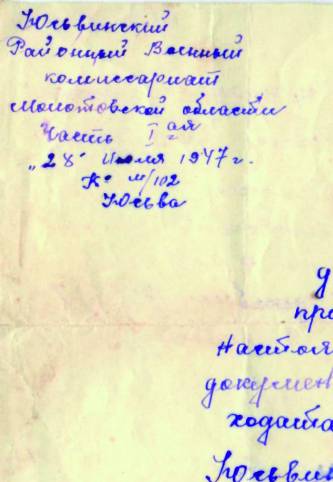 Юсьвинский
Районный Военный
комиссариат
Молотовской области
Часть I ая
"28" июля 1947 г.
№ м/102
Юсьва
д
пр
настоя
докумен
ходата
Юсьвин